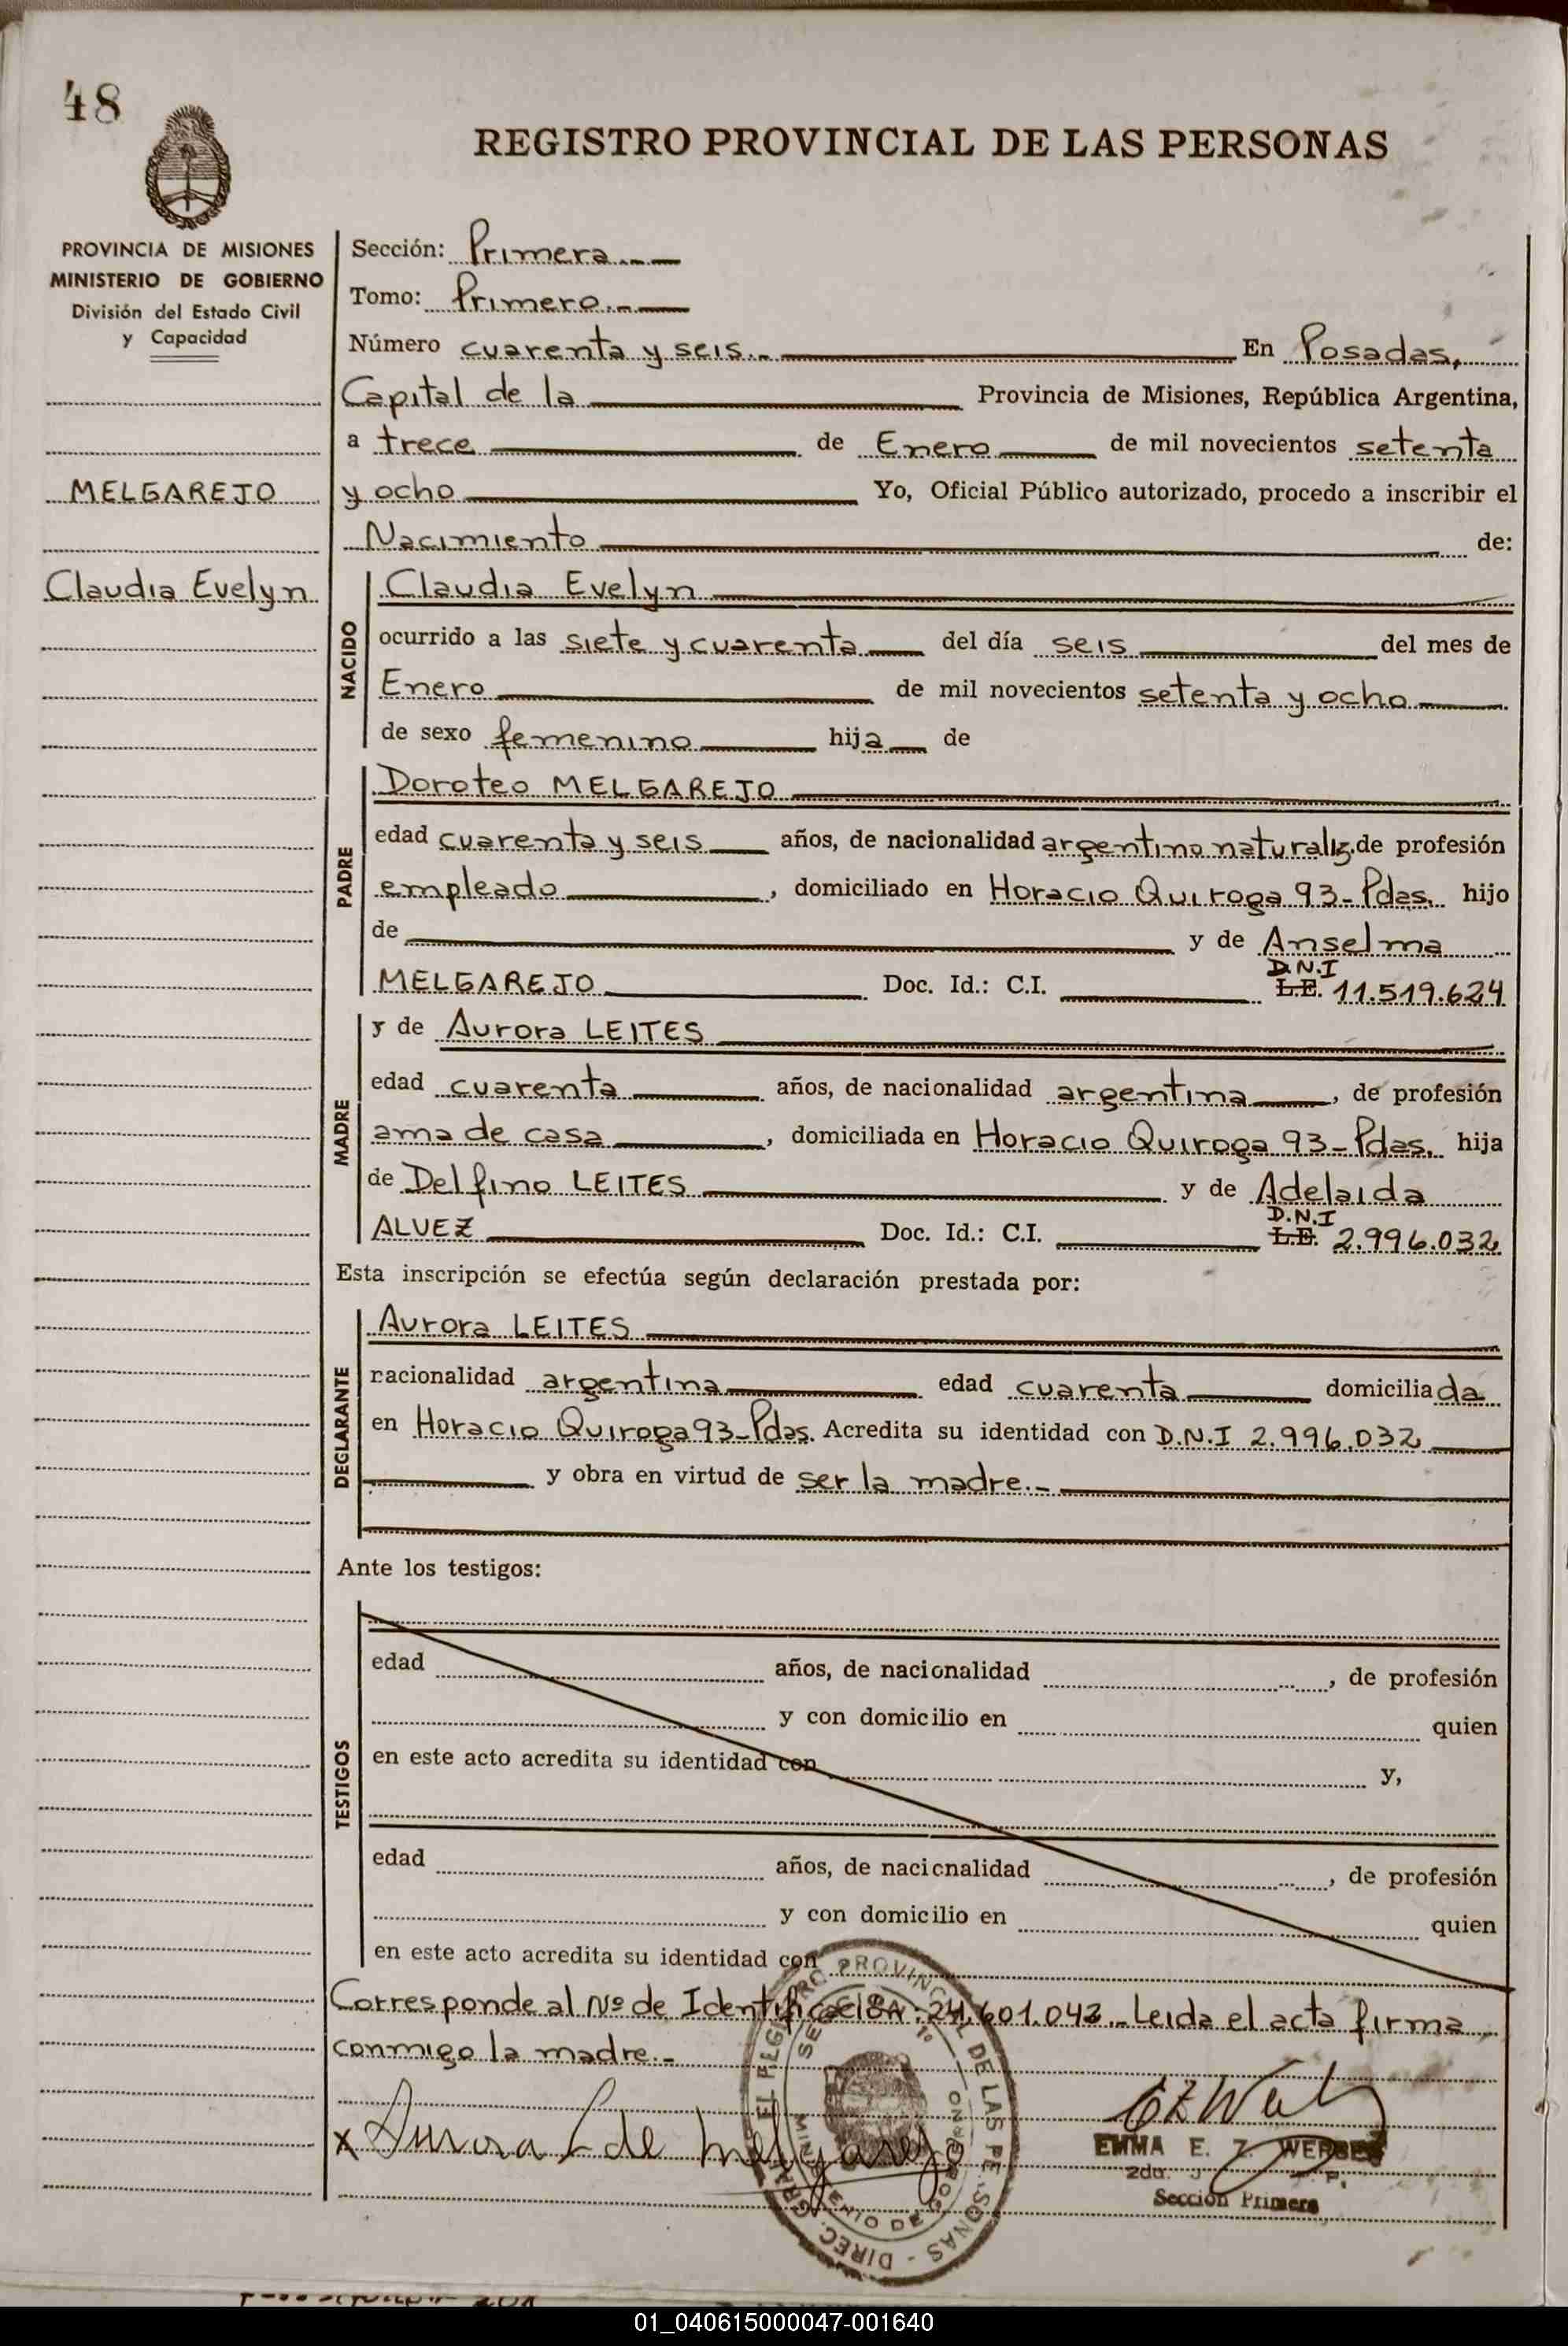 48
REGISTRO PROVINCIAL DE LAS PERSONAS
PROVINCIA DE MISIONES
MINISTERIO DE GOBIERNO
División del Estado Civil
y Capacidad
MELGAREJO
Claudia Evelyn
Sección: Primera.-
Tomo: Primero.-
Número cuarenta y seis.- En Posadas,
Capital de la Provincia de Misiones, República Argentina,
a trece de Enero de mil novecientos setenta
y ocho Yo, Oficial Público autorizado, procedo a inscribir el
Nacimiento de:
NACIDO
Claudia Evelyn
ocurrido a las siete y cuarenta del día seis del mes de
Enero de mil novecientos setenta y ocho
de sexo femenino hija de
PADRE
Doroteo MELGAREJO
edad cuarenta y seis años, de nacionalidad argentino naturaliz. de profesión
empleado, domiciliado en Horacio Quiroga 93-Pdas. hijo
de y de Anselma
MELGAREJO Doc. Id.: C.I. L.E. D.N.I 11.519.624
MADRE
y de Aurora LEITES
edad cuarenta años, de nacionalidad argentina, de profesión
ama de casa, domiciliada en Horacio Quiroga 93-Pdas. hija
de Delfino LEITES y de Adelaida
ALVEZ Doc. Id.: C.I. L.E. D.N.I 2.996.032
Esta inscripción se efectúa según declaración prestada por:
DECLARANTE
Aurora LEITES
nacionalidad argentina edad cuarenta domiciliada
en Horacio Quiroga 93-Pdas. Acredita su identidad con D.N.I 2.996.032
y obra en virtud de ser la madre.-
Ante los testigos:
TESTIGOS
edad años, de nacionalidad , de profesión
y con domicilio en quien
en este acto acredita su identidad con y,
edad años, de nacionalidad , de profesión
y con domicilio en quien
en este acto acredita su identidad con
Corresponde al Nº de Identificación: 24.601.043.- Leida el acta firma
conmigo la madre.-
x Aurora L de Melgarejo
EMMA E. Z. WERBES
Sección Primera
01_040615000047-001640